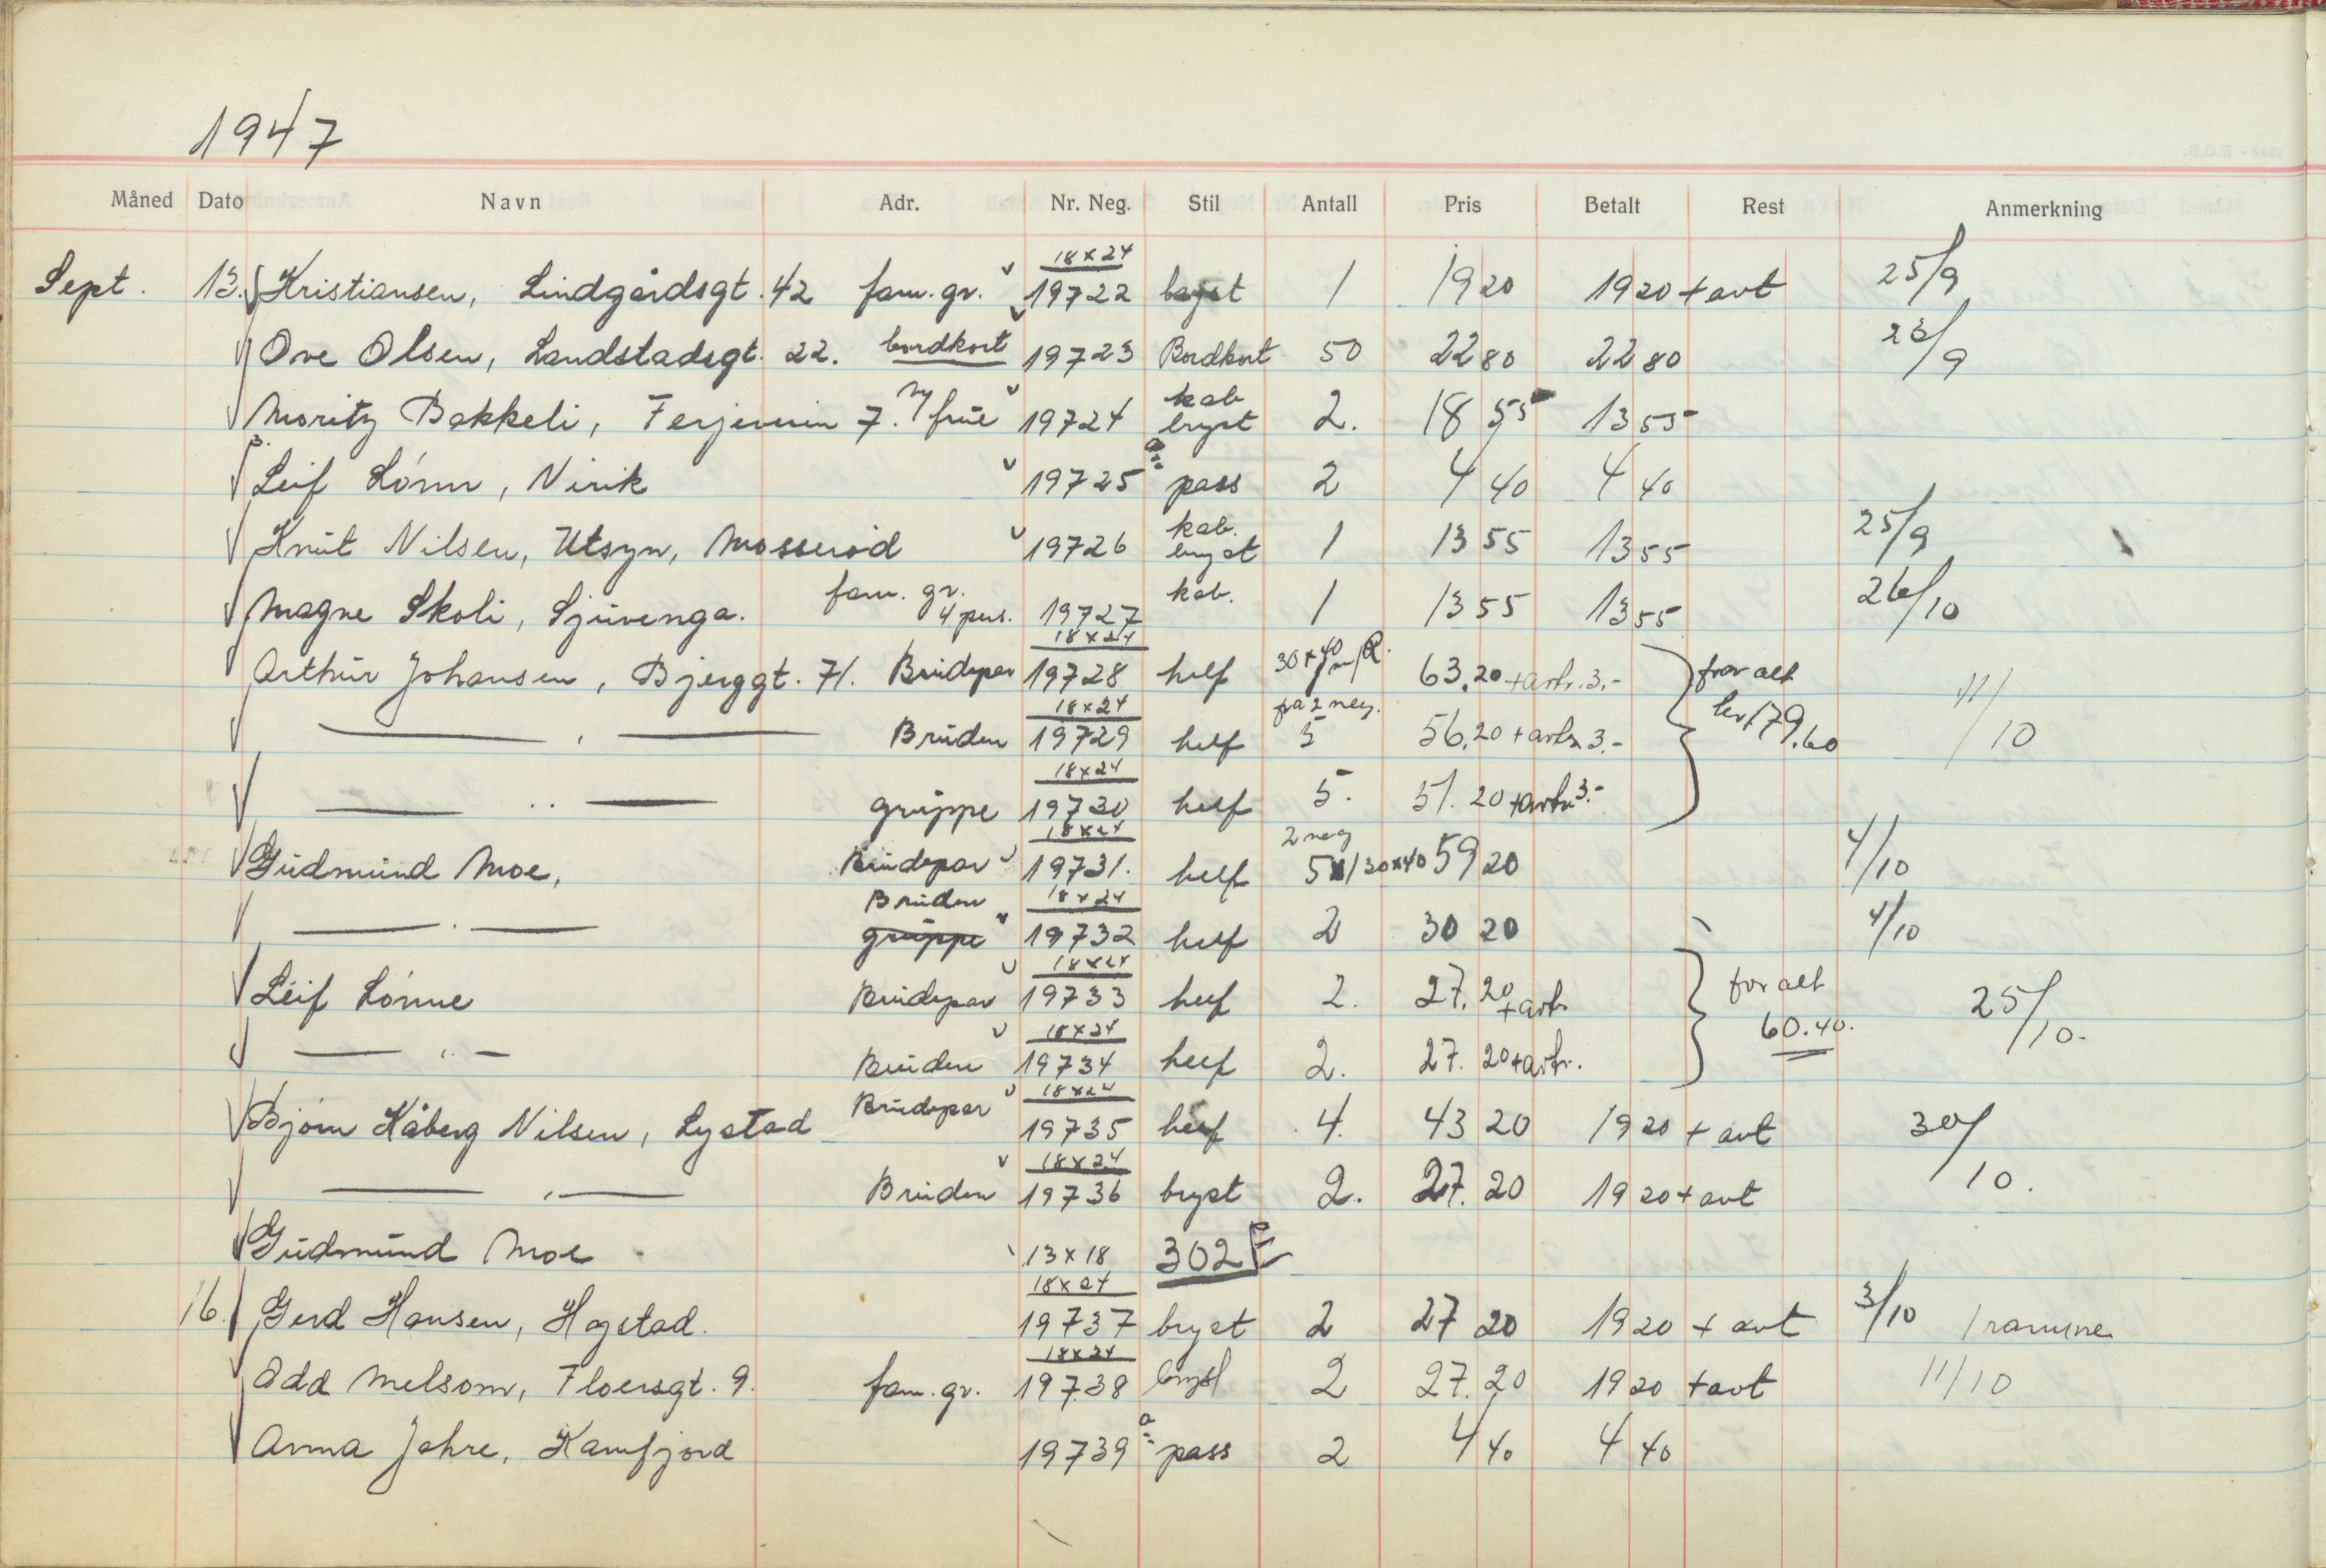 1947
Måned Dato Navn Adr. Nr. Neg. Stil Antall Pris Betalt Rest Anmerkning
18x24
Sept. 13. Kristiansen, Lindgårdsgt. 42 fam. gr. 19722 bryst 1 19 20 19 20 + avt 25/9
Ove Olsen, Landstadsgt. 22. bordkort 19723 Bordkort 50 22 80 22 80 23/9
kab
Moritz Bakkeli, 7. m/frue 19724 bryst 2. 18 55 13 55
Leif Lónne, Nirik 19725 a pass 2 4 40 4 40
kab.
Knut Nilsen, Utsyn, Mosserød 19726 bryst 1 13 55 13 55 25/9
fam. gr. kab.
Magne Skoli, Sjuvenga. 4 pers. 19727 1 13 55 13 55 26/10
18x24 30x40
Arthur Johansen, Bjerggt. 71. Brudepar 19728 helf 63.20 + avtr. 3.- for alt
18x24 på 2 neg.
— " — Bruden 19729 helf 5 56.20 + avtr. 3.- lev 179.60 11/10
18x24
— " — gruppe 19730 helf 5. 51.20 + avtr. 3.-
18x24 2 neg
Gudmund Moe, Brudepar 19731. helf 5 1/30x40 59 20 4/10
Bruden 18x24
— " — gruppe 19732 helf 2 30 20 4/10
18x24
Leif Lónne Brudepar 19733 helf 2. 27.20 + avtr. for alt 25/10.
18x24 60.40.
— " — Bruden 19734 helf 2. 27.20 + avtr.
18x24
Bjørn Kåberg Nilsen, Lystad Brudepar 19735 helf 4. 43 20 19 20 + avt 30/10.
18x24
— " — Bruden 19736 bryst 2. 27.20 19 20 + avt
Gudmund Moe 13x18 302 E
18x24
16. Gerd Hansen, Hogstad. 19737 bryst 2 27 20 19 20 + avt 3/10 1 ramme
18x24
Odd Melsom, Floersgt. 9. fam. gr. 19738 bryst 2 27.20 19 20 + avt 11/10
Anna Jahre, Kamfjord 19739 a pass 2 4 40 4 40